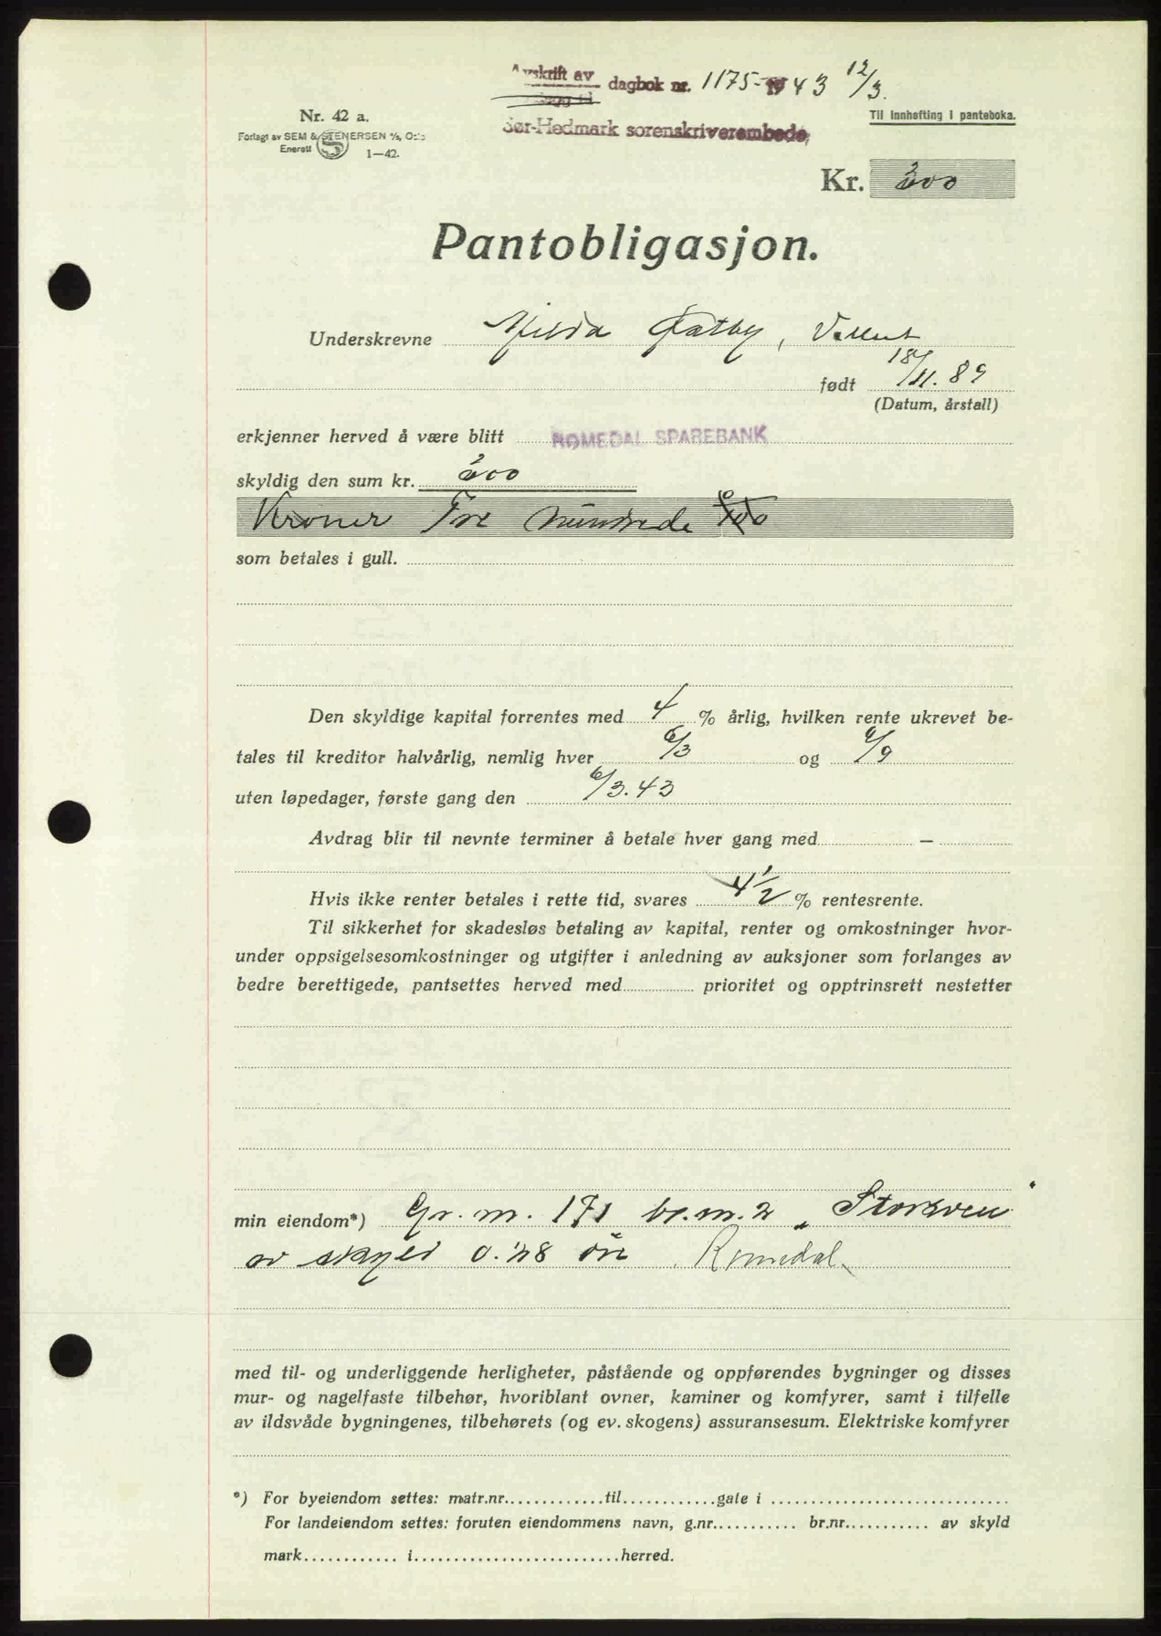 Avskrift av dagbok nr. 1175-1943 12/3.
Sør-Hedmark sorenskriverembede,
Til innhefting i panteboka.
Nr. 42 a.
Forlagt av SEM & STENERSEN A/S, Oslo
Enerett 1—42.
Kr. 300
Pantobligasjon.
Underskrevne Hilda Fatby,
født 18/11. 89
(Datum, årstall)
erkjenner herved å være blitt ROMEDAL SPAREBANK
skyldig den sum kr. 300
Kroner Tre hundrede
som betales i gull.
Den skyldige kapital forrentes med 4 % årlig, hvilken rente ukrevet be-
tales til kreditor halvårlig, nemlig hver 6/3 og 6/9
uten løpedager, første gang den 6/3.43
Avdrag blir til nevnte terminer å betale hver gang med —
Hvis ikke renter betales i rette tid, svares 4 1/2 % rentesrente.
Til sikkerhet for skadesløs betaling av kapital, renter og omkostninger hvor-
under oppsigelsesomkostninger og utgifter i anledning av auksjoner som forlanges av
bedre berettigede, pantsettes herved med prioritet og opptrinsrett nestetter
min eiendom*) Gr. m. 171 br. m. 2 „
av skyld 0.48 øre Romedal.
med til- og underliggende herligheter, påstående og oppførendes bygninger og disses
mur- og nagelfaste tilbehør, hvoriblant ovner, kaminer og komfyrer, samt i tilfelle
av ildsvåde bygningenes, tilbehørets (og ev. skogens) assuransesum. Elektriske komfyrer
*) For byeiendom settes: matr.nr.............til............gate i ..............................
For landeiendom settes: foruten eiendommens navn, g.nr........... br.nr........... av skyld
mark............ i..........................herred.